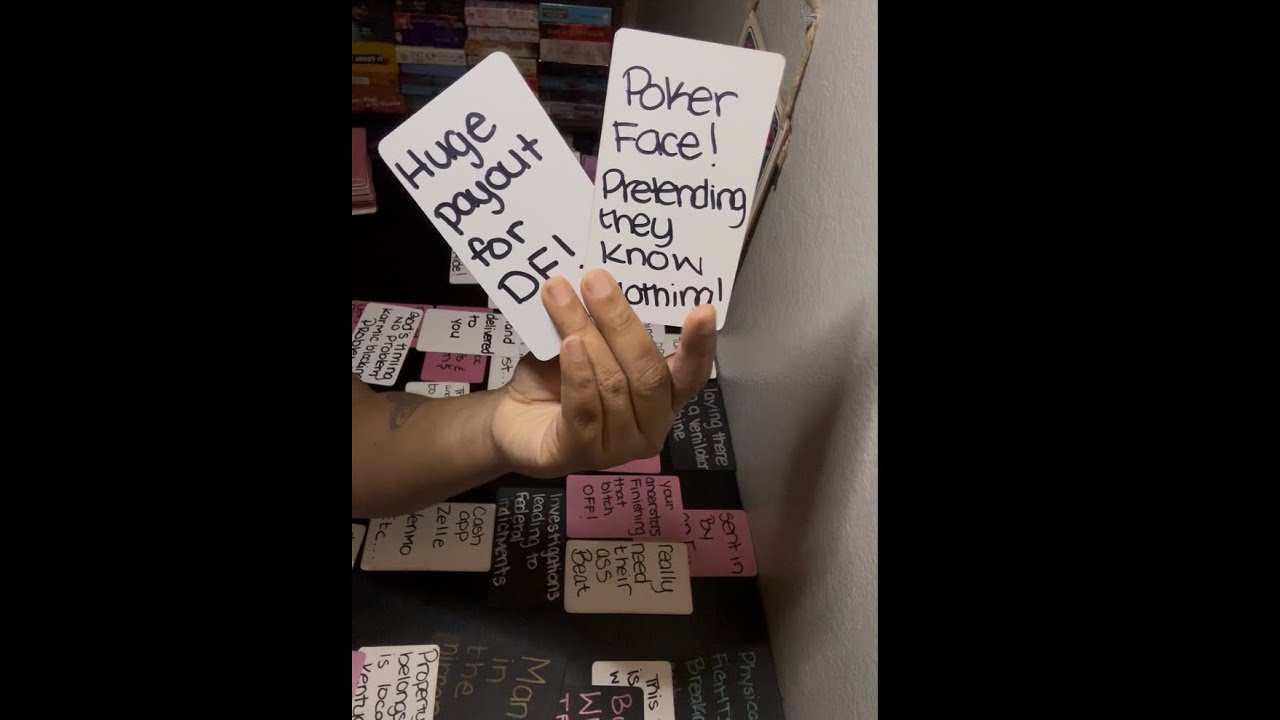 Huge
payout
for
DF!
Poker
Face!
Pretending
they
know
nothing!
God's timing
NO problem
karmic blocking
delivered
to
you
and
st...
laying there
on a venilator
your
ancerstors
Finishing
that
bitch
OFF!
sent in
BY
Investigations
leading to
Federal
indichments
Cash
app
Zelle
Venmo
Etc....
really
need
their
ass
Beat
Property
belongs
is loca
Man
in
the
This
is
Physical
FIGHTS
Breaking